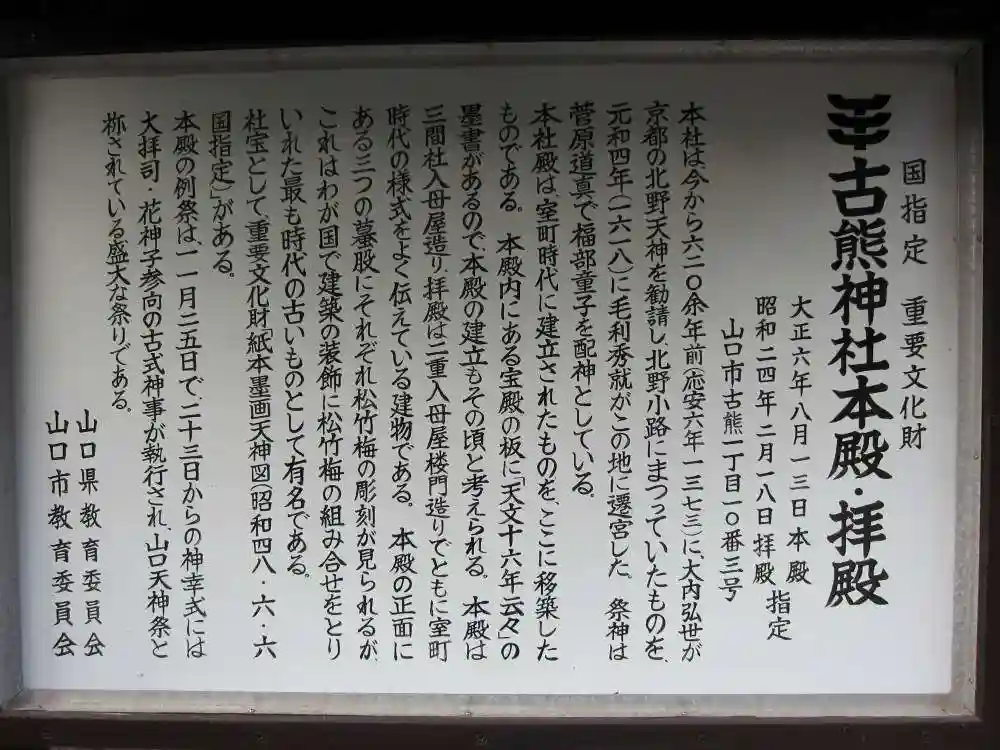 国指定　重要文化財
古熊神社本殿・拝殿
大正六年八月一三日本殿
昭和二四年二月一八日拝殿
指定
山口市古熊一丁目一〇番三号
本社は今から六二〇余年前(応安六年一三七三)に、大内弘世が
京都の北野天神を勧請し、北野小路にまつっていたものを、
元和四年(一六一八)に毛利秀就がこの地に遷宮した。　祭神は
菅原道真で福部童子を配神としている。
本社殿は、室町時代に建立されたものを、ここに移築した
ものである。　本殿内にある宝殿の板に「天文十六年云々」の
墨書があるので、本殿の建立もその頃と考えられる。　本殿は
三間社入母屋造り、拝殿は二重入母屋楼門造りでともに室町
時代の様式をよく伝えている建物である。　本殿の正面に
ある三つの蟇股にそれぞれ松竹梅の彫刻が見られるが、
これはわが国で建築の装飾に松竹梅の組み合せをとり
いれた最も時代の古いものとして有名である。
社宝として、重要文化財「紙本墨画天神図(昭和四八・六・六
国指定)」がある。
本殿の例祭は、一一月二五日で、二十三日からの神幸式には
大拝司・花神子参向の古式神事が執行され、山口天神祭と
称されている盛大な祭りである。
山口県教育委員会
山口市教育委員会